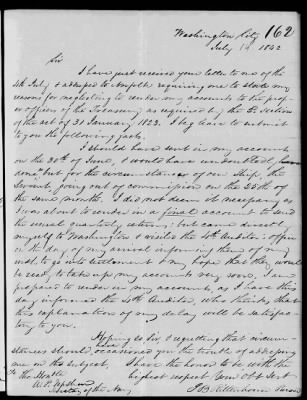 162
Washington City
July 14 1842
Sir
I have just received your letter to me of the
4th July & addressed to Norfolk requiring me to state my
reasons for neglecting to render my accounts to the prop-
er officers of the Treasury as required by the 3d Section
of the act of 31 January 1823. I beg leave to submit
to you the following facts.
I should have sent in my account
on the 30th of June, & would have undoubtedly have
done but for the circumstance of our Ship, the
going out of commission on the 25th of
the same month. I did not deem it necessary as
I was about to render in a final account to send
the usual quarterly returns; but came directly
myself to Washington & visited the 4th Auditor's office
on the day of my arrival informing them of my
wish to go into settlement & my hope that they would
be ready to take up my accounts very soon. I am
prepared to render in my accounts, as I have this
day informed the 4th Auditor, who thinks that
this explanation of my delay will be satisfac-
tory to you.
Hoping so Sir, & regretting that circum-
stances should occasioned you the trouble of addressing
me on this subject, I have the honor to be with the
To the Honble highest respect Your Obt Servt
A. P. Upshur
Secretary of the Navy
Rittenhouse Purser